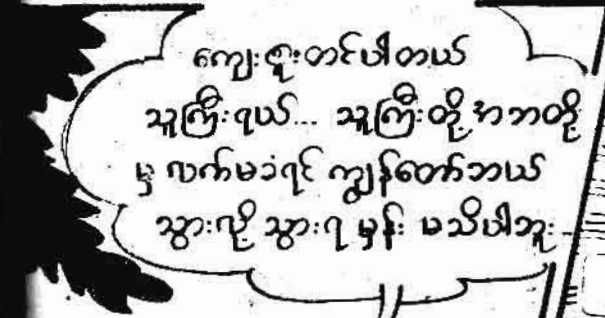 ကျေးဇူးတင်ပါတယ်
သူကြီးရယ်... သူကြီးတို့ အဘတို့
မှ လက်မခံရင် ကျွန်တော်ဘယ်
သွားလို့ သွားရမှန်း မသိပါဘူး